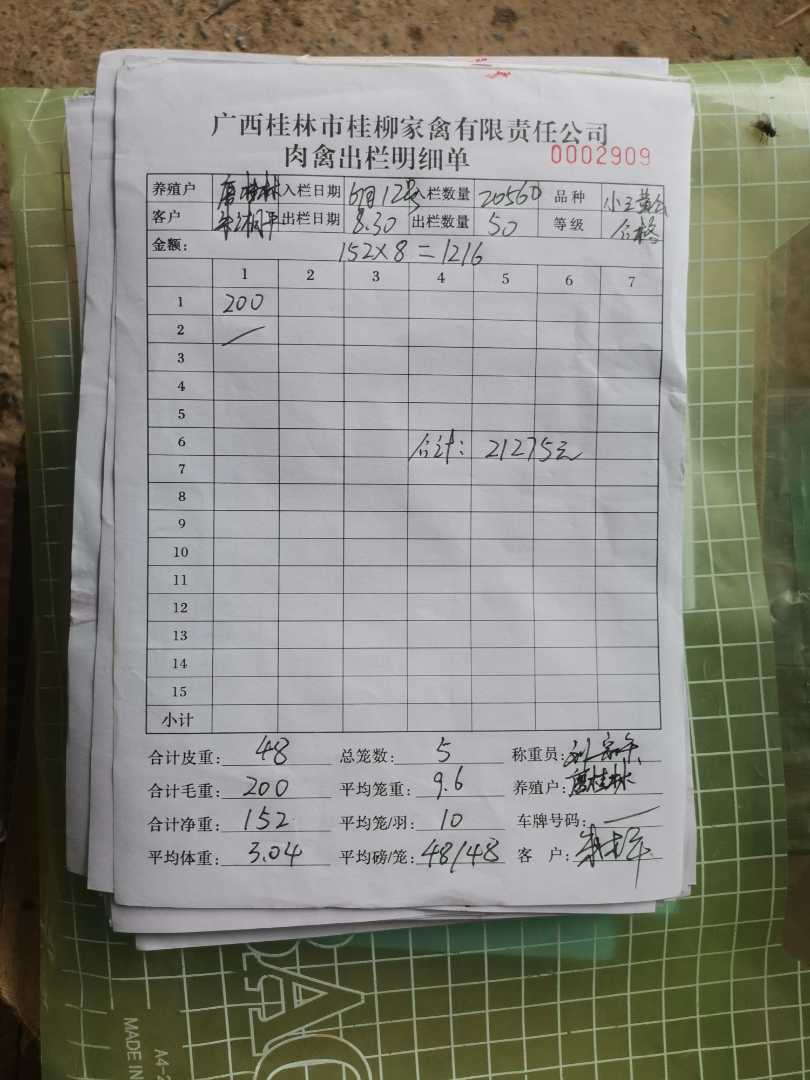 广西桂林市桂柳家禽有限责任公司
肉禽出栏明细单 0002909
养殖户 唐桂林 入栏日期 6月12号 入栏数量 20560 品种
客户 出栏日期 8.30 出栏数量 50 等级 合格
金额: 152×8=1216
1 2 3 4 5 6 7
1 200
2
3
4
5
6 合计: 21275元
7
8
9
10
11
12
13
14
15
小计
合计皮重: 48 总笼数: 5 称重员:
合计毛重: 200 平均笼重: 9.6 养殖户: 唐桂林
合计净重: 152 平均笼/羽: 10 车牌号码:
平均体重: 3.04 平均磅/笼: 48/48 客 户:
MADE IN
A4-2